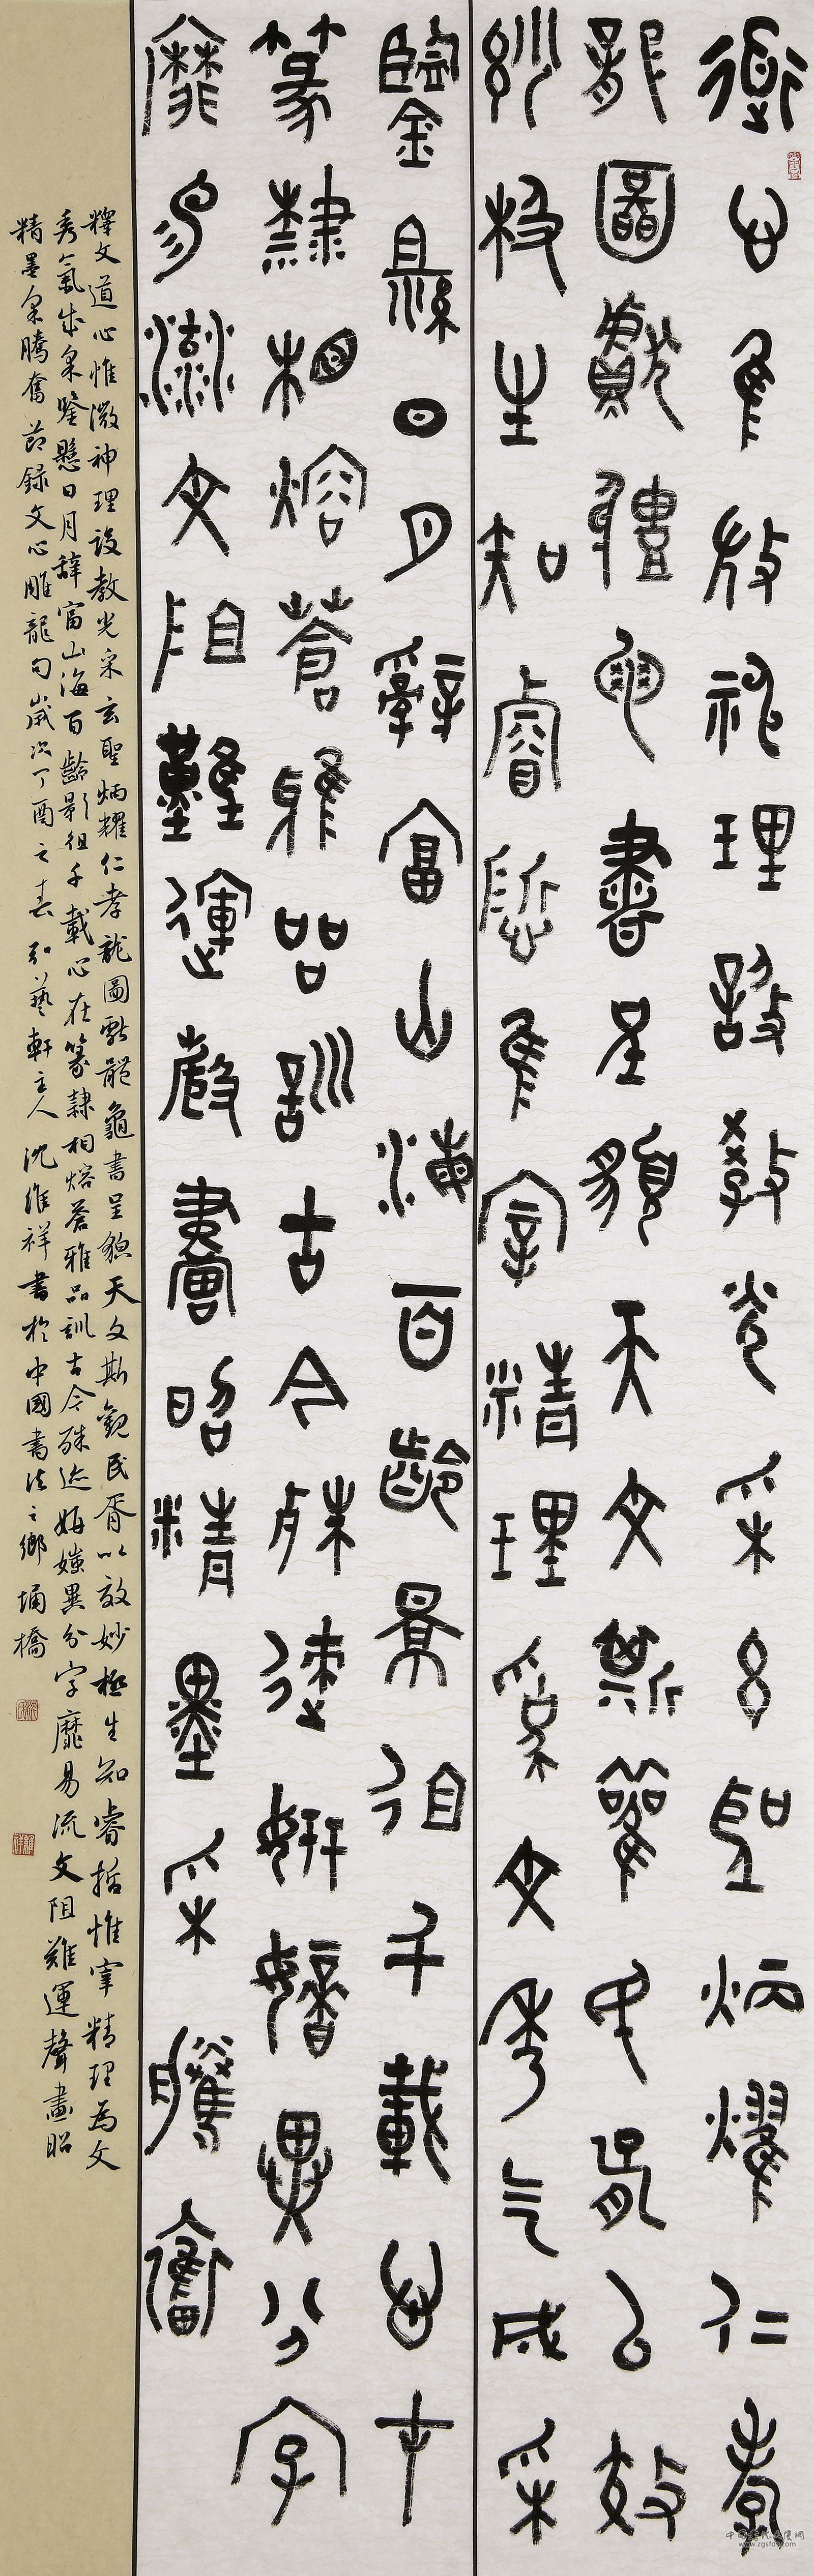 道心惟微神理設教光采玄聖炳耀仁孝
龍圖獻體龜書呈貌天文斯觀民胥以效
妙極生知睿哲惟宰精理為文秀气成采
鑒懸日月辭富山海百齡景徂千載心才
篆隸相熔蒼雅品訓古今殊迹妍媸異分字
靡易流文阻難運聲畫昭精墨采騰奮
釋文道心惟微神理設教光采玄聖炳耀仁孝龍圖獻體龜書呈貌天文斯觀民胥以效妙極生知睿哲惟宰精理為文
秀氣成采鑒懸日月辭富山海百齡影徂千載心在篆隸相熔蒼雅品訓古今殊迹妍媸異分字靡易流文阻難運聲畫昭
精墨采騰奮節錄文心雕龍句歲次丁酉之春弘藝軒主人沈維祥書於中國書法之鄉埇橋
www.zgsfds.com